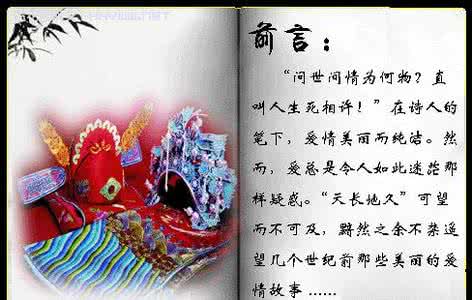 前言：
“问世间情为何物？直
叫人生死相许！”在诗人的
笔下，爱情美丽而纯洁。然
而，爱总是令人如此迷茫那
样疑惑。“天长地久”可望
而不可及，黯然之余不禁遥
望几个世纪前那些美丽的爱
情故事……